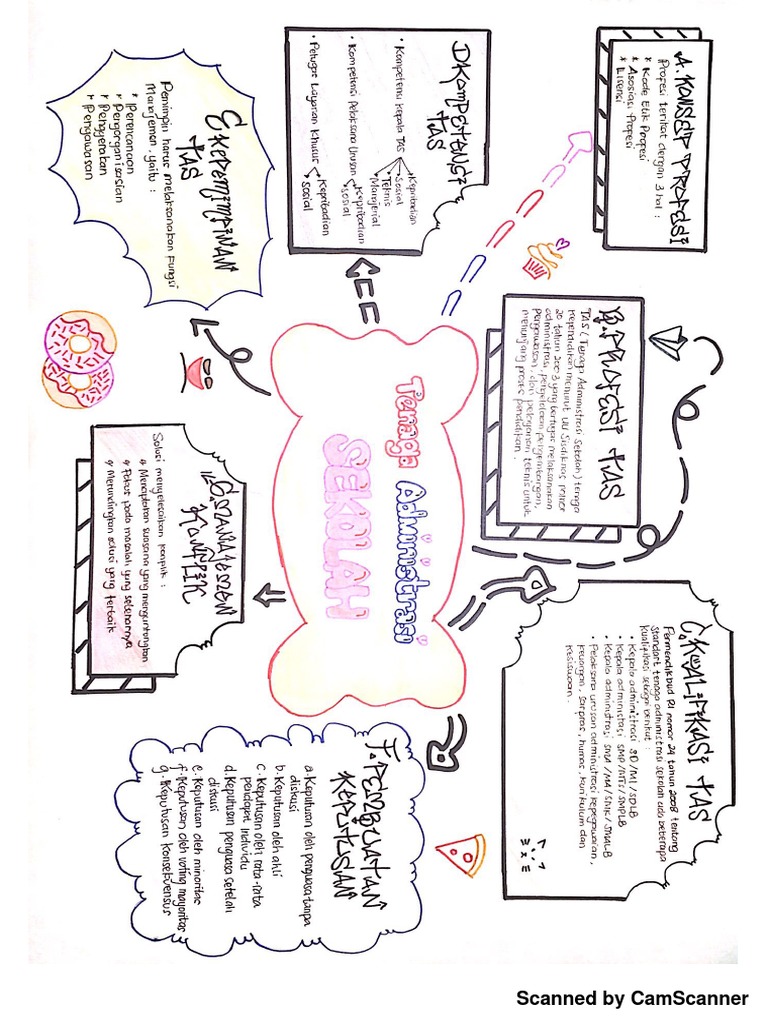 Tenaga Administrasi
SEKOLAH
A. KONSEP PROFESI
Profesi terikat dengan 3 hal :
* Kode Etik Profesi
* Asosiasi Profesi
* Lisensi
B. PROFESI TAS
TAS (Tenaga Administrasi Sekolah) tenaga
kependidikan menurut UU Sisdiknas nomer
20 tahun 2003 yang bertugas melaksanakan
administrasi, pengelolaan pengembangan,
pengawasan, dan pelayanan teknis untuk
menunjang proses pendidikan.
C. KUALIFIKASI TAS
Permendikbud RI nomor 24 tahun 2008 tentang
standart tenaga administrasi sekolah ada beberapa
kualifikasi sebagai berikut :
• Kepala administrasi SD/MI/SDLB
• Kepala administrasi SMP/MTs/SMPLB
• Kepala administrasi SMA/MA/SMK/SMALB
• Pelaksana urusan administrasi kepegawaian,
keuangan, sarpras, humas, kurikulum dan
kesiswaan.
D KOMPETENSI
TAS
• Kompetensi kepala TAS
Kepribadian
Sosial
Teknis
Manajerial
• Kompetensi Pelaksana Urusan
Kepribadian
Sosial
• Petugas Layanan Khusus
Kepribadian
Sosial
E KEPEMIMPINAN
TAS
Pemimpin harus melaksanakan Fungsi
Manajemen, yaitu :
* Perencanaan
* Pengorganisasian
* Penggerakan
* Pengawasan
F. PEMBUATAN
KEPUTUSAN
a. Keputusan oleh penguasa tanpa
diskusi
b. Keputusan oleh ahli
c. Keputusan oleh rata-rata
pendapat individu
d. Keputusan penguasa setelah
diskusi
e. Keputusan oleh minoritas
f. Keputusan oleh voting mayoritas
g. Keputusan konsekuensus
G. MANAJEMEN
KONFLIK
Solusi menyelesaikan konflik :
* Menciptakan suasana yang menguntungkan
* Fokus pada masalah yang sebenarnya
* Merundingkan solusi yang terbaik
Scanned by CamScanner